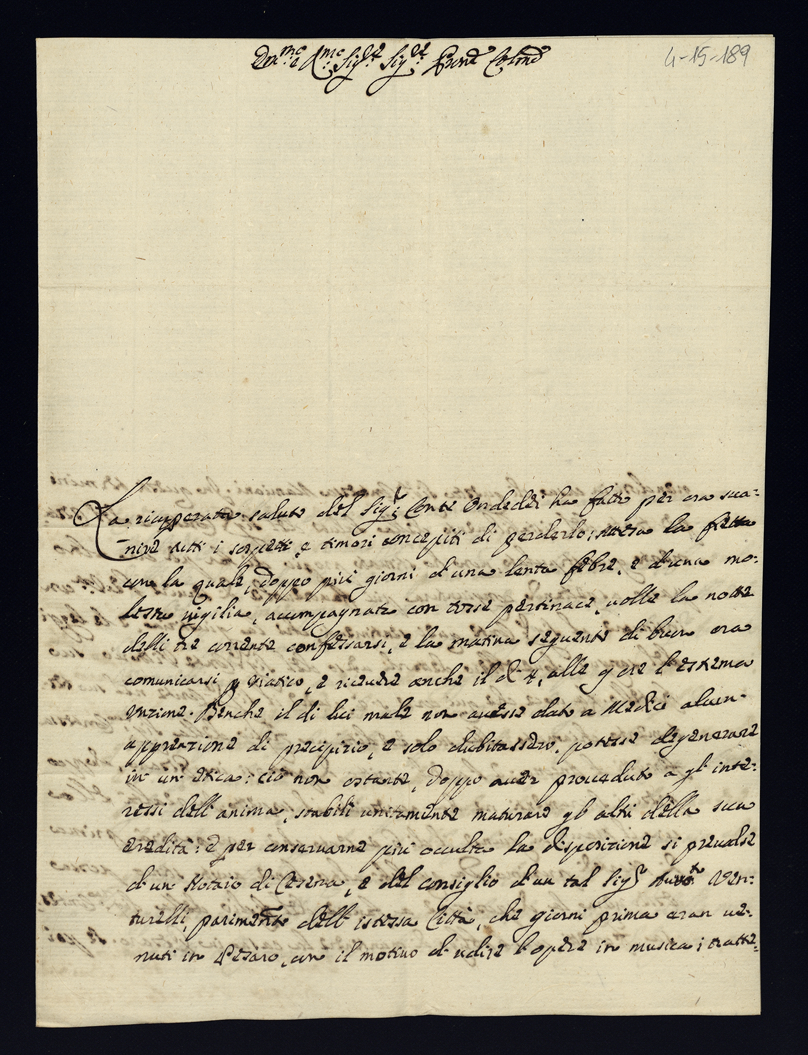 4-15-189
Ill.mo Sig.re Sig.re Prone Colmo
La ricuperata salute del Sig.r Conte Ondedei ha fatto per ora sua=
nire tutti i sospetti, e timori concepiti di perderlo; attesa la fretta
con la quale, doppo più giorni d'una lenta febre, e d'una mo=
lesta vigilia, accompagnata con tosse pertinace, volle la notte
delli tre corrente confessarsi, e la matina seguente di buon ora
comunicarsi p Viatico, e ricevere anche il dì 4, alle 9 ore l'estrema
Unzione. Benche il di lui male non avesse dato a Medici alcun=
apprenzione di precipizio, e solo dubitassero, potesse degenerare
in un'etica; ciò non ostante, doppo aver proveduto a gl'inte=
ressi dell'anima, stabilì unitamente maturare gl'altri della sua
eredità: e per conservarne più occulta la disposizione si prevalse
d'un Notaio di Cesena, e del consiglio d'un tal Sig.r Ven=
turelli, parimente dell'istessa Città, che giorni prima eran ve=
nuti in Pesaro, con il motivo d'udire l'opere in musica; tratte=